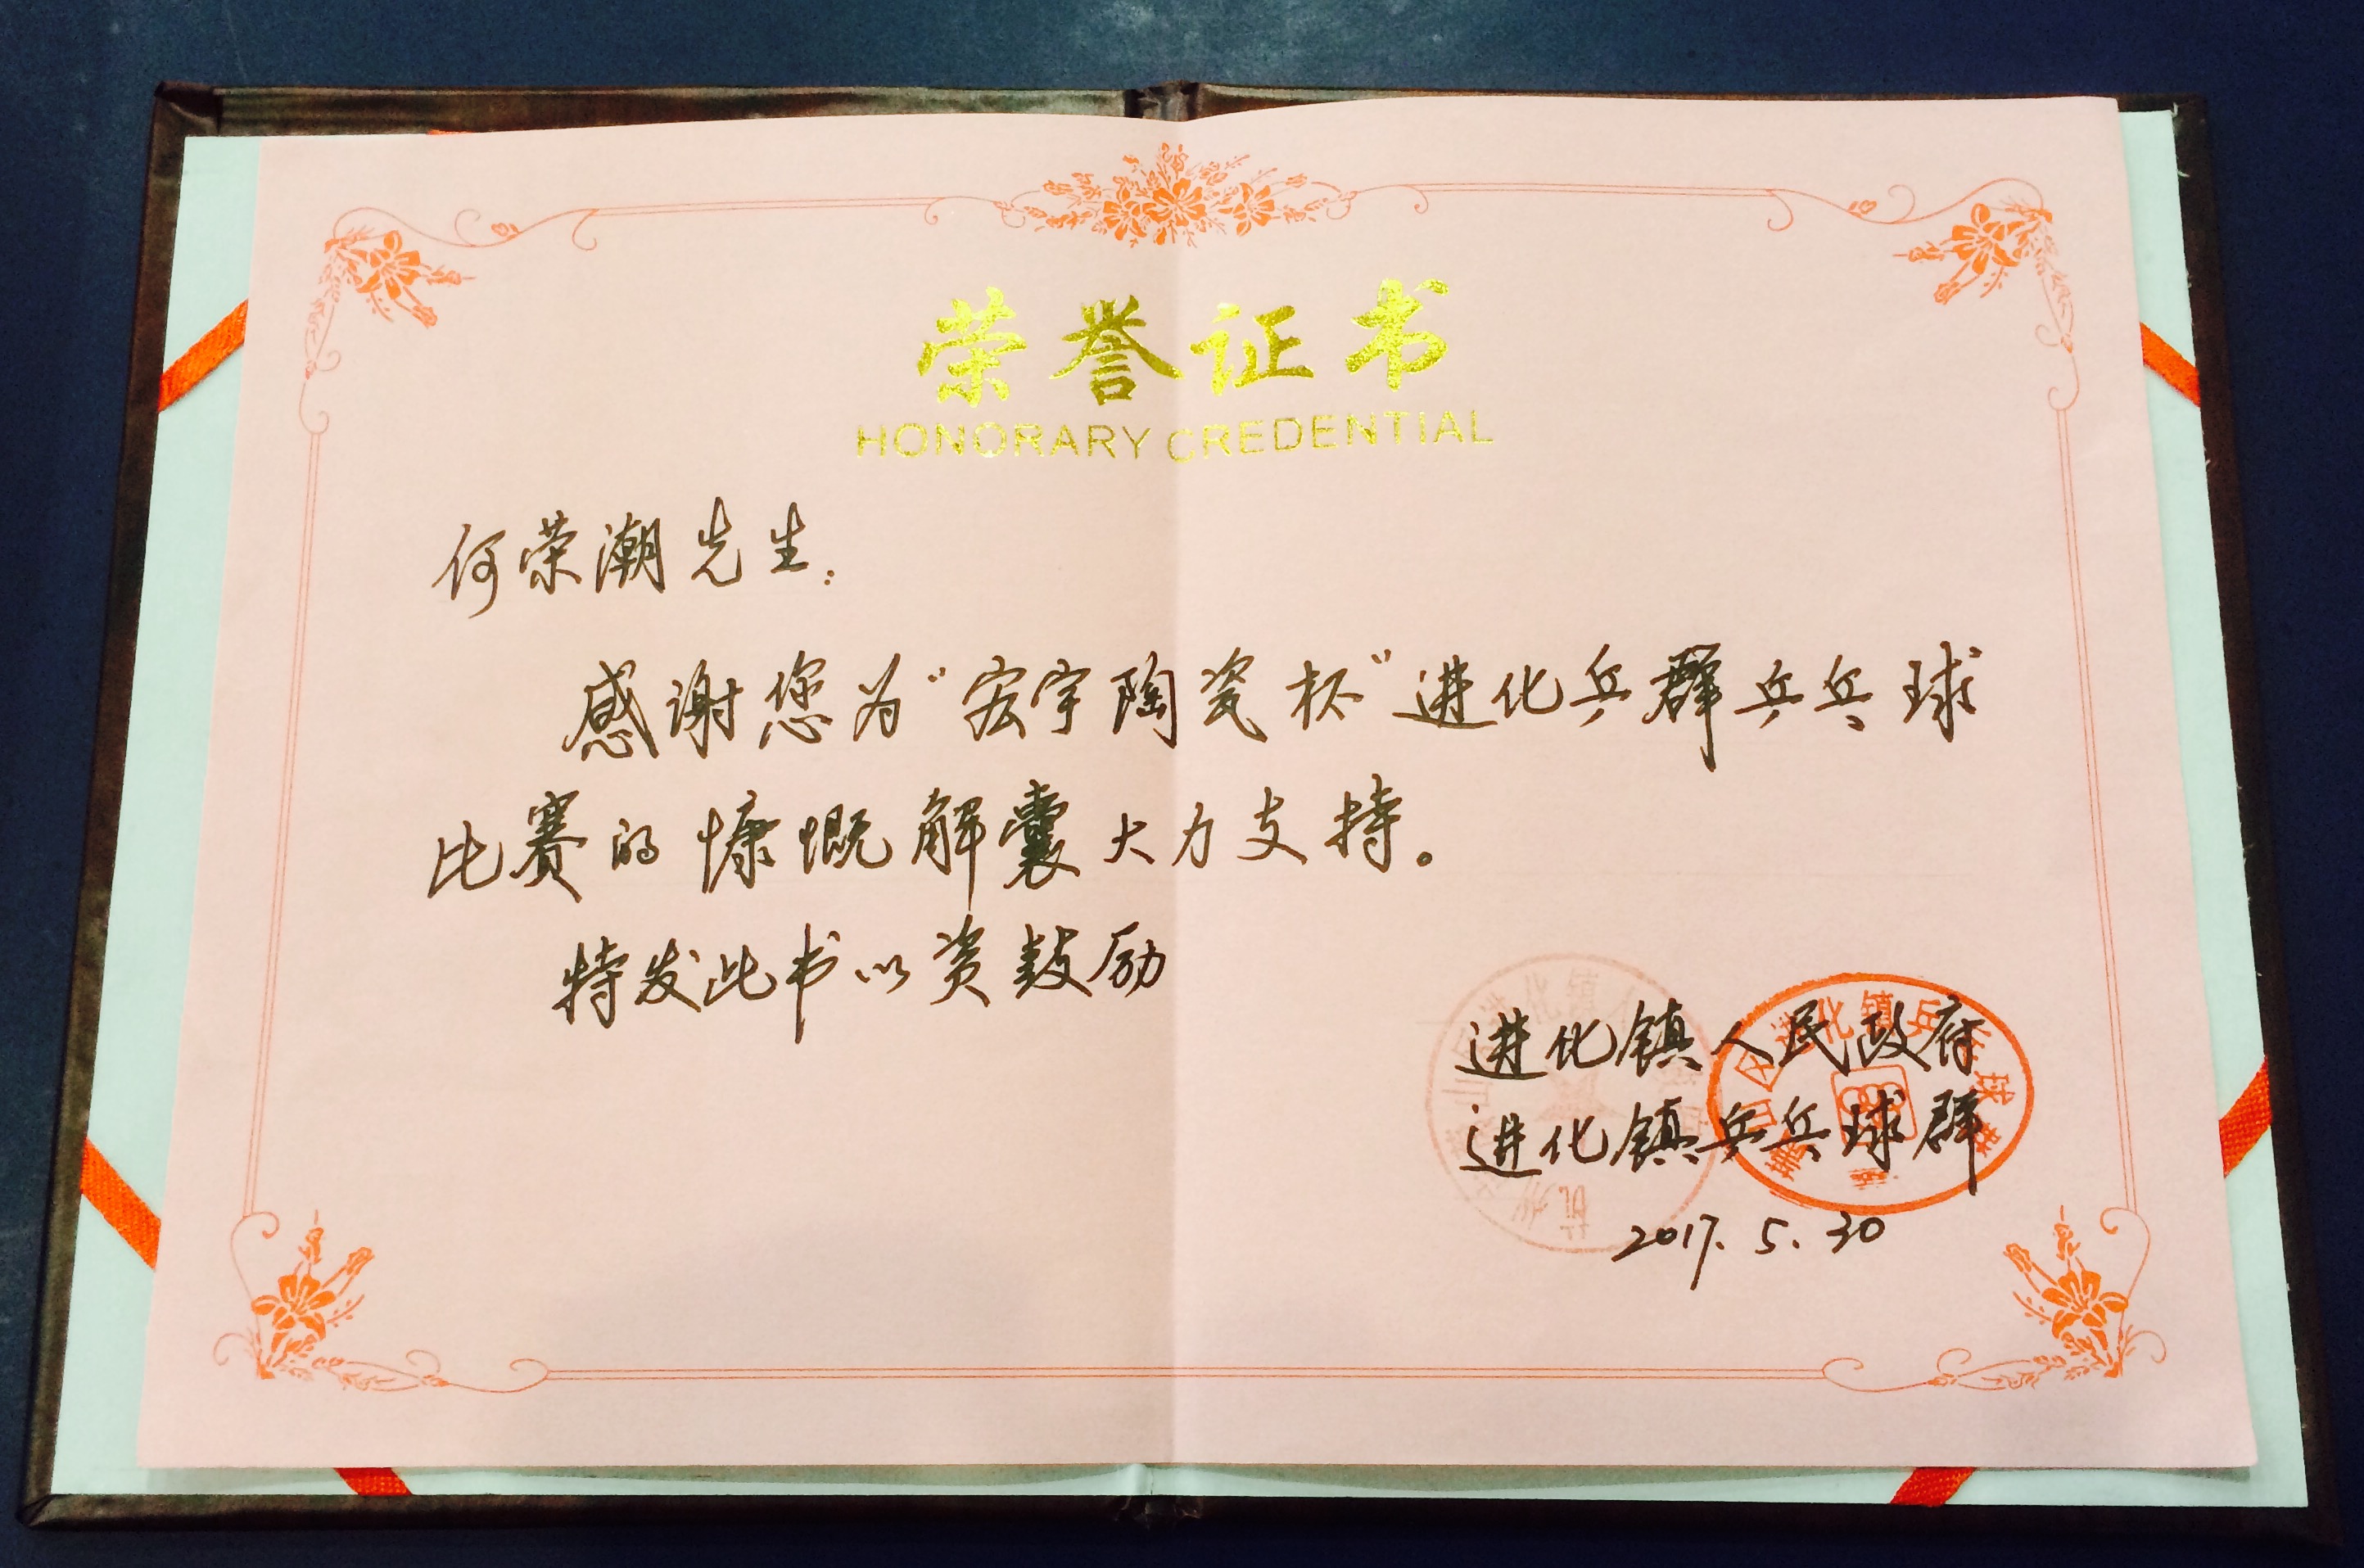 荣誉证书
HONORARY CREDENTIAL
何荣潮先生:
感谢您为“宏宇陶瓷杯”进化乒群乒乓球
比赛的慷慨解囊大力支持。
特发此书以资鼓励
进化镇人民政府
进化镇乒乓球群
2017.5.30